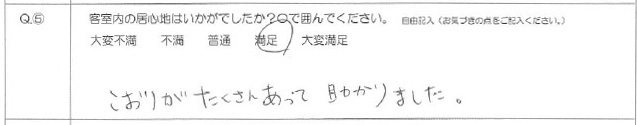 Q.⑤ 客室内の居心地はいかがでしたか?○で囲んでください。 自由記入（お気づきの点をご記入ください。）
大変不満 不満 普通 満足 大変満足
こおりがたくさんあって助かりました。